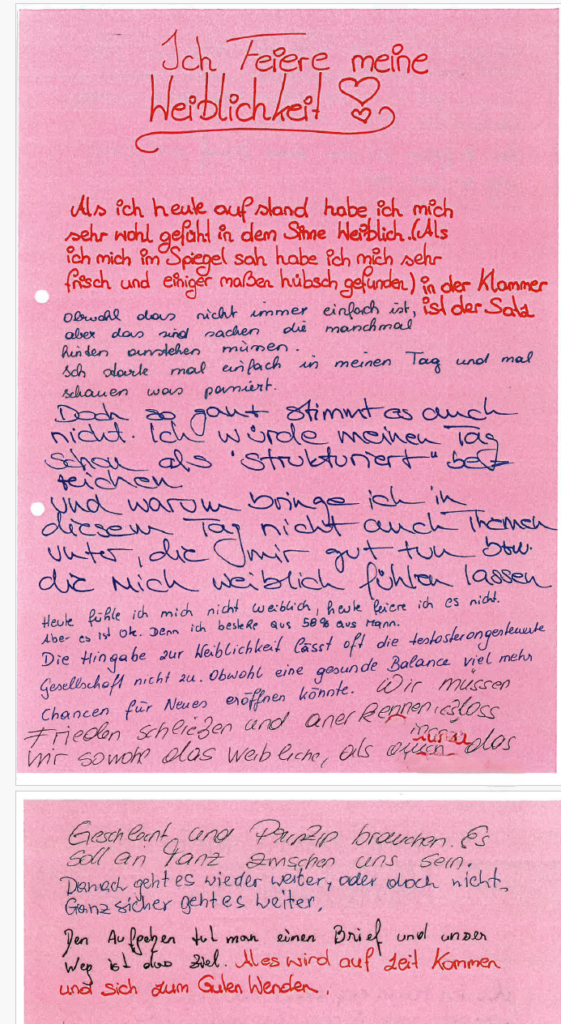 Ich Feiere meine
Weiblichkeit
Als ich heute aufstand habe ich mich
sehr wohl gefühl in dem Sinne Weiblich. (Als
ich mich im Spiegel sah habe ich mich sehr
frisch und einiger maßen hübsch gefunden) in der Klammer
ist der Satz
obwohl das nicht immer einfach ist,
aber das sind sachen die manchmal
hinten anstehen müssen.
Ich starte mal einfach in meinen Tag und mal
schauen was passiert.
Doch so ganz stimmt es auch
nicht. Ich würde meinen Tag
schon als "strukturiert" bezeichnen
und warum bringe ich in
diesem Tag nicht auch Themen
unter, die mir gut tun bzw.
die mich weiblich fühlen lassen
Heute fühle ich mich nicht weiblich, heute feiere ich es nicht.
Aber es ist Ok. Denn ich bestehe aus 50% aus Mann.
Die Hingabe zur Weiblichkeit lässt oft die testosterongesteuerte
Gesellschaft nicht zu. Obwohl eine gesunde Balance viel mehr
Chancen für Neues eröffnen könnte. Wir müssen
Frieden schließen und anerkennen, dass
wir sowohl das weibliche, als auch das
Geschlecht und Prinzip brauchen. Es
soll an Tanz zwischen uns sein.
Danach geht es wieder weiter, oder doch nicht,
Ganz sicher geht es weiter.
Den Aufgeben tut man einen Brief und unser
Weg ist das Ziel. Alles wird auf Zeit Kommen
und sich zum Guten Wenden.